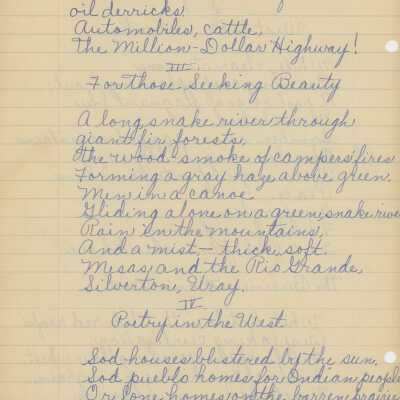 oil derricks.
Automobiles, cattle,
The Million-Dollar Highway!
III
For those Seeking Beauty
A long snake river through
giant fir forests,
The wood-smoke of campers' fires
Forming a gray haze above green.
Men in a canoe
Gliding alone on a green, snake rive
Rain in the mountains,
And a mist — thick, soft.
Mesas and the Rio Grande,
Silverton, Uray.
IV
Poetry in the West
Sod-houses blistered by the sun.
Sod pueblo homes for Indian people
Or lone homes on the barren prairie